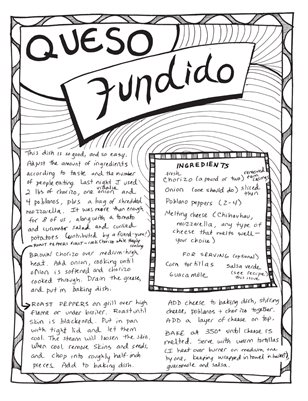 QUESO
Fundido
This dish is so good, and so easy.
Adjust the amount of ingredients
according to taste and the number
of people eating. Last night I used
2 lbs of chorizo, one whole onion and
4 poblanos, plus a lot of shredded
mozzarella. It was more than enough
for 8 of us, along with a tomato
and cucumber salad and curried
potatoes (contributed by a friend-yum!)
BROWN CHORIZO over medium-high
heat. Add onion, cooking until
onion is softened and chorizo
cooked through. Drain the grease,
and put in baking dish.
ROAST PEPPERS on grill over high
flame or under broiler. Roast until
skin is blackened. Put in pan
with tight lid and let them
cool. The steam will loosen the skin.
When cool remove skins and seeds,
and chop into roughly half-inch
pieces. Add to baking dish.
INGREDIENTS
fresh
Chorizo (a pound or two) removed from casing
Onion (one should do) sliced thin
Poblano peppers (2-4)
Melting cheese (Chihuahua,
mozzarella, any type of
cheese that melts well—
your choice)
FOR SERVING (optional)
Corn tortillas Salsa verde
Guacamole (see recipe)
ADD cheese to baking dish, stirring
cheese, poblanos + chorizo together.
ADD a layer of cheese on top.
BAKE at 350° until cheese is
melted. Serve with warm tortillas
(I heat over burner on medium one
by one, keeping wrapped in towel in bowl),
guacamole and salsa.